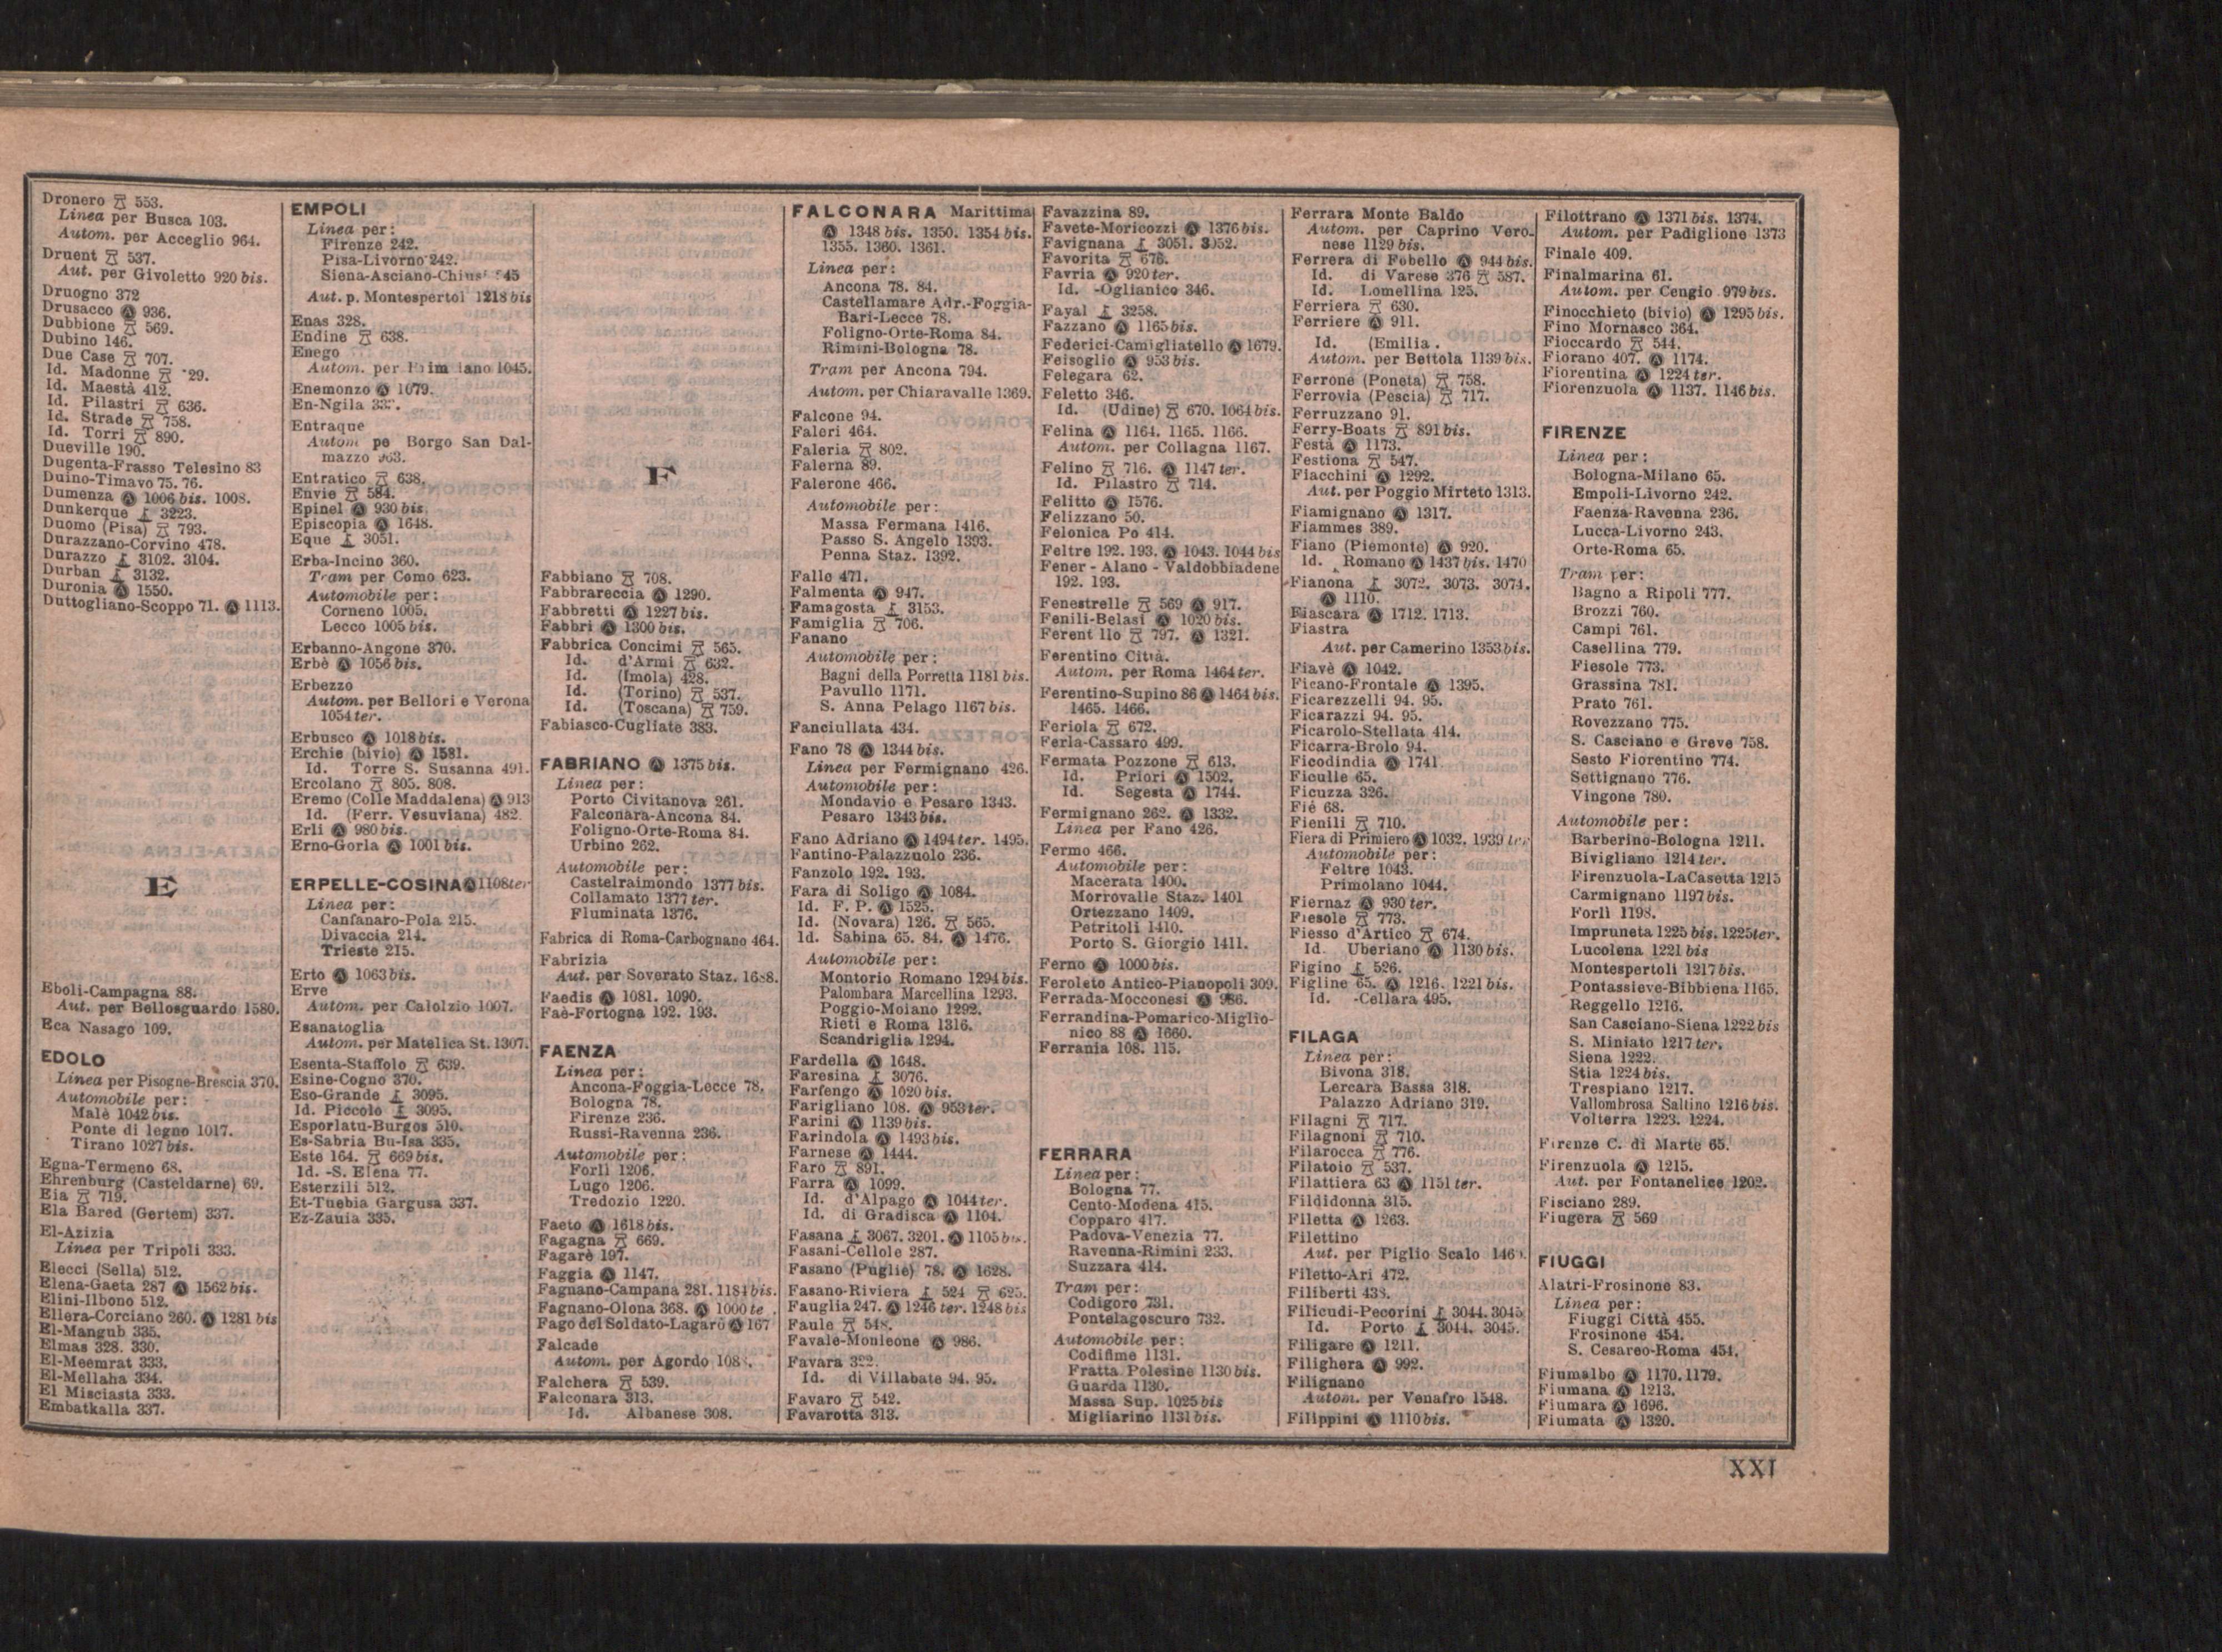 Dronero 553.
Linea per Busca 103.
Autom. per Acceglio 964.
Druent 537.
Aut. per Givoletto 920 bis.
Druogno 372
Drusacco Ⓐ 936.
Dubbione 569.
Dubino 146.
Due Case 707.
Id. Madonne 29.
Id. Maestà 412.
Id. Pilastri 636.
Id. Strade 758.
Id. Torri 890.
Dueville 190.
Dugenta-Frasso Telesino 83
Duino-Timavo 75. 76.
Dumenza Ⓐ 1006 bis. 1008.
Dunkerque 3223.
Duomo (Pisa) 793.
Durazzano-Corvino 478.
Durazzo 3102. 3104.
Durban 3132.
Duronia Ⓐ 1550.
Duttogliano-Scoppo 71. Ⓐ 1113.
E
Eboli-Campagna 88.
Aut. per Bellosguardo 1580.
Eca Nasago 109.
EDOLO
Linea per Pisogne-Brescia 370.
Automobile per:
Malè 1042 bis.
Ponte di legno 1017.
Tirano 1027 bis.
Egna-Termeno 68.
Ehrenburg (Casteldarne) 69.
Eia 719.
Ela Bared (Gertem) 337.
El-Azizia
Linea per Tripoli 333.
Elecci (Sella) 512.
Elena-Gaeta 287 Ⓐ 1562 bis.
Elini-Ilbono 512.
Ellera-Corciano 260. Ⓐ 1281 bis
El-Mangub 335.
Elmas 328. 330.
El-Meemrat 333.
El-Mellaha 334.
El Misciasta 333.
Embatkalla 337.
EMPOLI
Linea per:
Firenze 242.
Pisa-Livorno 242.
Siena-Asciano-Chiusi 245
Aut. p. Montespertoi 1218 bis
Enas 328.
Endine 638.
Enego
Autom. per 1045.
Enemonzo Ⓐ 1079.
En-Ngila
Entraque
Autom pe Borgo San Dal-
mazzo 963.
Entratico 638.
Envie 584.
Epinel Ⓐ 930 bis.
Episcopia Ⓐ 1648.
Eque 3051.
Erba-Incino 360.
Tram per Como 623.
Automobile per:
Corneno 1005.
Lecco 1005 bis.
Erbanno-Angone 370.
Erbè Ⓐ 1056 bis.
Erbezzo
Autom. per Bellori e Verona
1054 ter.
Erbusco Ⓐ 1018 bis.
Erchie (bivio) Ⓐ 1581.
Id. Torre S. Susanna 491.
Ercolano 805. 808.
Eremo (Colle Maddalena) Ⓐ 913
Id. (Ferr. Vesuviana) 482.
Erli Ⓐ 980 bis.
Erno-Gorla Ⓐ 1001 bis.
ERPELLE-COSINA Ⓐ 1108 ter
Linea per:
Canfanaro-Pola 215.
Divaccia 214.
Trieste 215.
Erto Ⓐ 1063 bis.
Erve
Autom. per Calolzio 1007.
Esanatoglia
Autom. per Matelica St. 1307.
Esenta-Staffolo 639.
Esine-Cogno 370.
Eso-Grande 3095.
Id. Piccolo 3095.
Esporlatu-Burgos 510.
Es-Sabria Bu-Isa 335.
Este 164. 669 bis.
Id. -S. Elena 77.
Esterzili 512.
Et-Tuebia Gargusa 337.
Ez-Zauia 335.
F
Fabbiano 708.
Fabbrareccia Ⓐ 1290.
Fabbretti Ⓐ 1227 bis.
Fabbri Ⓐ 1300 bis.
Fabbrica Concimi 565.
Id. d'Armi 632.
Id. (Imola) 428.
Id. (Torino) 537.
Id. (Toscana) 759.
Fabiasco-Cugliate 383.
FABRIANO Ⓐ 1375 bis.
Linea per:
Porto Civitanova 261.
Falconara-Ancona 84.
Foligno-Orte-Roma 84.
Urbino 262.
Automobile per:
Castelraimondo 1377 bis.
Collamato 1377 ter.
Fluminata 1376.
Fabrica di Roma-Carbognano 464.
Fabrizia
Aut. per Soverato Staz. 1688.
Faedis Ⓐ 1081. 1090.
Faè-Fortogna 192. 193.
FAENZA
Linea per:
Ancona-Foggia-Lecce 78.
Bologna 78.
Firenze 236.
Russi-Ravenna 236.
Automobile per:
Forlì 1206.
Lugo 1206.
Tredozio 1220.
Faeto Ⓐ 1618 bis.
Fagagna 669.
Fagarè 197.
Faggia Ⓐ 1147.
Fagnano-Campana 281. 1184 bis.
Fagnano-Olona 368. Ⓐ 1000 te .
Fago del Soldato-Lagarò Ⓐ 167
Falcade
Autom. per Agordo 108 .
Falchera 539.
Falconara 313.
Id. Albanese 308.
FALCONARA Marittima
Ⓐ 1348 bis. 1350. 1354 bis.
1355. 1360. 1361.
Linea per:
Ancona 78. 84.
Castellamare Adr.-Foggia-
Bari-Lecce 78.
Foligno-Orte-Roma 84.
Rimini-Bologna 78.
Tram per Ancona 794.
Autom. per Chiaravalle 1369.
Falcone 94.
Faleri 464.
Faleria 802.
Falerna 89.
Falerone 466.
Automobile per:
Massa Fermana 1416.
Passo S. Angelo 1393.
Penna Staz. 1392.
Fallo 471.
Falmenta Ⓐ 947.
Famagosta 3153.
Famiglia 706.
Fanano
Automobile per:
Bagni della Porretta 1181 bis.
Pavullo 1171.
S. Anna Pelago 1167 bis.
Fanciullata 434.
Fano 78 Ⓐ 1344 bis.
Linea per Fermignano 426.
Automobile per:
Mondavio e Pesaro 1343.
Pesaro 1343 bis.
Fano Adriano Ⓐ 1494 ter. 1495.
Fantino-Palazzuolo 236.
Fanzolo 192. 193.
Fara di Soligo Ⓐ 1084.
Id. F. P. Ⓐ 1525.
Id. (Novara) 126. 565.
Id. Sabina 65. 84. Ⓐ 1476.
Automobile per:
Montorio Romano 1294 bis.
Palombara Marcellina 1293.
Poggio-Moiano 1292.
Rieti e Roma 1316.
Scandriglia 1294.
Fardella Ⓐ 1648.
Faresina 3076.
Farfengo Ⓐ 1020 bis.
Farigliano 108. Ⓐ 953 ter.
Farini Ⓐ 1139 bis.
Farindola Ⓐ 1493 bis.
Farnese Ⓐ 1444.
Faro 891.
Farra Ⓐ 1099.
Id. d'Alpago Ⓐ 1044 ter.
Id. di Gradisca Ⓐ 1104.
Fasana 3067. 3201. Ⓐ 1105 bis.
Fasani-Cellole 287.
Fasano (Puglie) 78. Ⓐ 1628.
Fasano-Riviera 524 625.
Fauglia 247. Ⓐ 1246 ter. 1248 bis
Faule 548.
Favale-Monleone Ⓐ 986.
Favara 322.
Id. di Villabate 94. 95.
Favaro 542.
Favarotta 313.
Favazzina 89.
Favete-Moricozzi Ⓐ 1376 bis.
Favignana 3051. 3052.
Favorita 676.
Favria Ⓐ 920 ter.
Id. -Oglianico 346.
Fayal 3258.
Fazzano Ⓐ 1165 bis.
Federici-Camigliatello Ⓐ 1679.
Feisoglio Ⓐ 953 bis.
Felegara 62.
Feletto 346.
Id. (Udine) 670. 1064 bis.
Felina Ⓐ 1164. 1165. 1166.
Autom. per Collagna 1167.
Felino 716. Ⓐ 1147 ter.
Id. Pilastro 714.
Felitto Ⓐ 1576.
Felizzano 50.
Felonica Po 414.
Feltre 192. 193. Ⓐ 1043. 1044 bis
Fener - Alano - Valdobbiadene
192. 193.
Fenestrelle 569 Ⓐ 917.
Fenili-Belasi Ⓐ 1020 bis.
Ferent llo 797. Ⓐ 1321.
Ferentino Città.
Autom. per Roma 1464 ter.
Ferentino-Supino 86 Ⓐ 1464 bis.
1465. 1466.
Feriola 672.
Ferla-Cassaro 499.
Fermata Pozzone 613.
Id. Priori Ⓐ 1502.
Id. Segesta Ⓐ 1744.
Fermignano 262. Ⓐ 1332.
Linea per Fano 426.
Fermo 466.
Automobile per:
Macerata 1400.
Morrovalle Staz. 1401
Ortezzano 1409.
Petritoli 1410.
Porto S. Giorgio 1411.
Ferno Ⓐ 1000 bis.
Feroleto Antico-Pianopoli 309.
Ferrada-Mocconesi Ⓐ 986.
Ferrandina-Pomarico-Miglio-
nico 88 Ⓐ 1660.
Ferrania 108. 115.
FERRARA
Linea per:
Bologna 77.
Cento-Modena 415.
Copparo 417.
Padova-Venezia 77.
Ravenna-Rimini 233.
Suzzara 414.
Tram per:
Codigoro 731.
Pontelagoscuro 732.
Automobile per:
Codifime 1131.
Fratta Polesine 1130 bis.
Guarda 1130.
Massa Sup. 1025 bis
Migliarino 1131 bis.
Ferrara Monte Baldo
Autom. per Caprino Vero-
nese 1129 bis.
Ferrera di Fobello Ⓐ 944 bis.
Id. di Varese 376 587.
Id. Lomellina 125.
Ferriera 630.
Ferriere Ⓐ 911.
Id. (Emilia .
Autom. per Bettola 1139 bis.
Ferrone (Poneta) 758.
Ferrovia (Pescia) 717.
Ferruzzano 91.
Ferry-Boats 891 bis.
Festà Ⓐ 1173.
Festiona 547.
Fiacchini Ⓐ 1292.
Aut. per Poggio Mirteto 1313.
Fiamignano Ⓐ 1317.
Fiammes 389.
Fiano (Piemonte) Ⓐ 920.
Id. Romano Ⓐ 1437 bis. 1470
Fianona 3072. 3073. 3074.
Ⓐ 1110.
Fiascara Ⓐ 1712. 1713.
Fiastra
Aut. per Camerino 1353 bis.
Fiavè Ⓐ 1042.
Ficano-Frontale Ⓐ 1395.
Ficarezzelli 94. 95.
Ficarazzi 94. 95.
Ficarolo-Stellata 414.
Ficarra-Brolo 94.
Ficodindia Ⓐ 1741.
Ficulle 65.
Ficuzza 326.
Fiè 68.
Fienili 710.
Fiera di Primiero Ⓐ 1032. 1939 ter
Automobile per:
Feltre 1043.
Primolano 1044.
Fiernaz Ⓐ 930 ter.
Fiesole 773.
Fiesso d'Artico 674.
Id. Uberiano Ⓐ 1130 bis.
Figino 526.
Figline 65. Ⓐ 1216. 1221 bis.
Id. -Cellara 495.
FILAGA
Linea per:
Bivona 318.
Lercara Bassa 318.
Palazzo Adriano 319.
Filagni 717.
Filagnoni 710.
Filarocca 776.
Filatoio 537.
Filattiera 63 Ⓐ 1151 ter.
Fildidonna 315.
Filetta Ⓐ 1263.
Filettino
Aut. per Piglio Scalo 146 .
Filetto-Ari 472.
Filiberti 438.
Filicudi-Pecorini 3044. 3045
Id. Porto 3044. 3045.
Filigare Ⓐ 1211.
Filighera Ⓐ 992.
Filignano
Autom. per Venafro 1548.
Filippini Ⓐ 1110 bis.
Filottrano Ⓐ 1371 bis. 1374.
Autom. per Padiglione 1373
Finale 409.
Finalmarina 61.
Autom. per Cengio 979 bis.
Finocchieto (bivio) Ⓐ 1295 bis.
Fino Mornasco 364.
Fioccardo 544.
Fiorano 407. Ⓐ 1174.
Fiorentina Ⓐ 1224 ter.
Fiorenzuola Ⓐ 1137. 1146 bis.
FIRENZE
Linea per:
Bologna-Milano 65.
Empoli-Livorno 242.
Faenza-Ravenna 236.
Lucca-Livorno 243.
Orte-Roma 65.
Tram per:
Bagno a Ripoli 777.
Brozzi 760.
Campi 761.
Casellina 779.
Fiesole 773.
Grassina 781.
Prato 761.
Rovezzano 775.
S. Casciano e Greve 758.
Sesto Fiorentino 774.
Settignano 776.
Vingone 780.
Automobile per:
Barberino-Bologna 1211.
Bivigliano 1214 ter.
Firenzuola-LaCasetta 1215
Carmignano 1197 bis.
Forlì 1198.
Impruneta 1225 bis. 1225ter.
Lucolena 1221 bis
Montespertoli 1217 bis.
Pontassieve-Bibbiena 1165.
Reggello 1216.
San Casciano-Siena 1222 bis
S. Miniato 1217 ter.
Siena 1222.
Stia 1224 bis.
Trespiano 1217.
Vallombrosa Saltino 1216 bis.
Volterra 1223. 1224.
Firenze C. di Marte 65.
Firenzuola Ⓐ 1215.
Aut. per Fontanelice 1202.
Fisciano 289.
Fiugera 569
FIUGGI
Alatri-Frosinone 83.
Linea per:
Fiuggi Città 455.
Frosinone 454.
S. Cesareo-Roma 454.
Fiumalbo Ⓐ 1170. 1179.
Fiumana Ⓐ 1213.
Fiumara Ⓐ 1696.
Fiumata Ⓐ 1320.
XXI